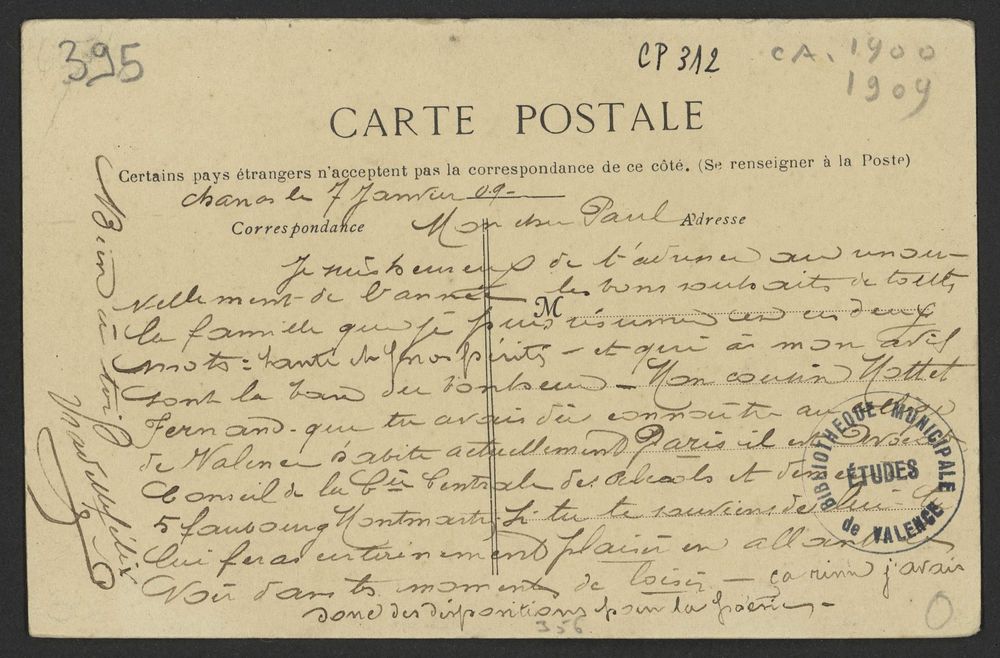 395
CP 312
CA. 1900
1909
CARTE POSTALE
Certains pays étrangers n'acceptent pas la correspondance de ce côté. (Se renseigner à la Poste)
Chanas le 7 Janvier 09-
Correspondance
Adresse
Mon cher Paul
Je suis heureux de t'adresser au renou-
vellement de l'année les bons souhaits de toute
M
la famille que je puis résumer en ces deux
mots = santé et prospérité - et qui à mon avis
sont la base du bonheur - Mon cousin Mottet
Fernand que tu avais dû connaître au collège
de Valence habite actuellement Paris il est
Conseil de la Cie Centrale des alcools et
5 faubourg Montmartre. Si tu te souviens de lui
lui feras certainement plaisir en allant
Voir dans tes moments de loisir - ça rime j'avais
donc des dispositions pour la poésie -
Bien à toi
BIBLIOTHEQUE MUNICIPALE
ÉTUDES
de VALENCE
356